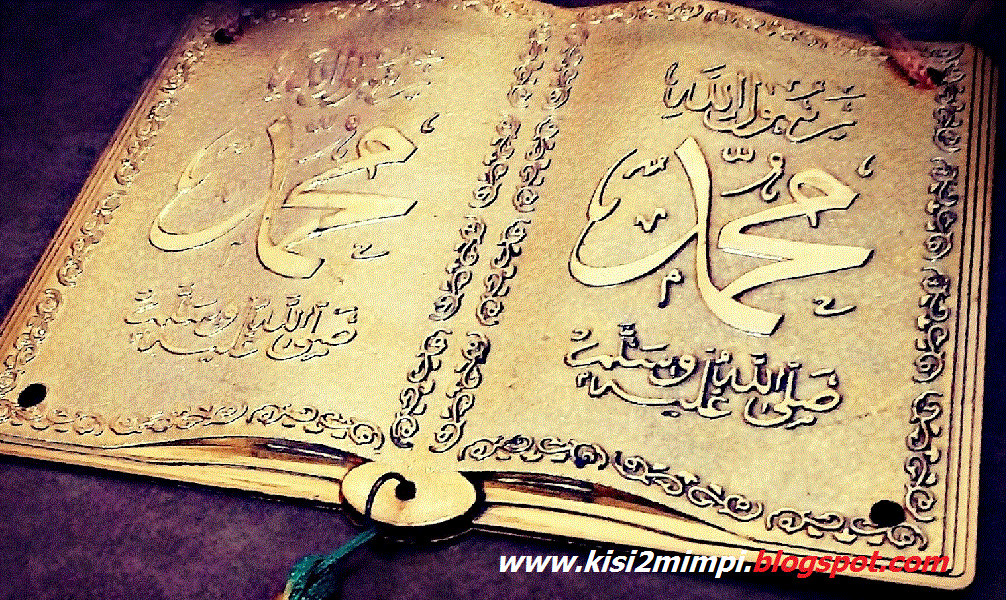 رسول الله
محمد
صلى الله عليه وسلم
رسول الله
محمد
صلى الله عليه وسلم
www.kisi2mimpi.blogspot.com